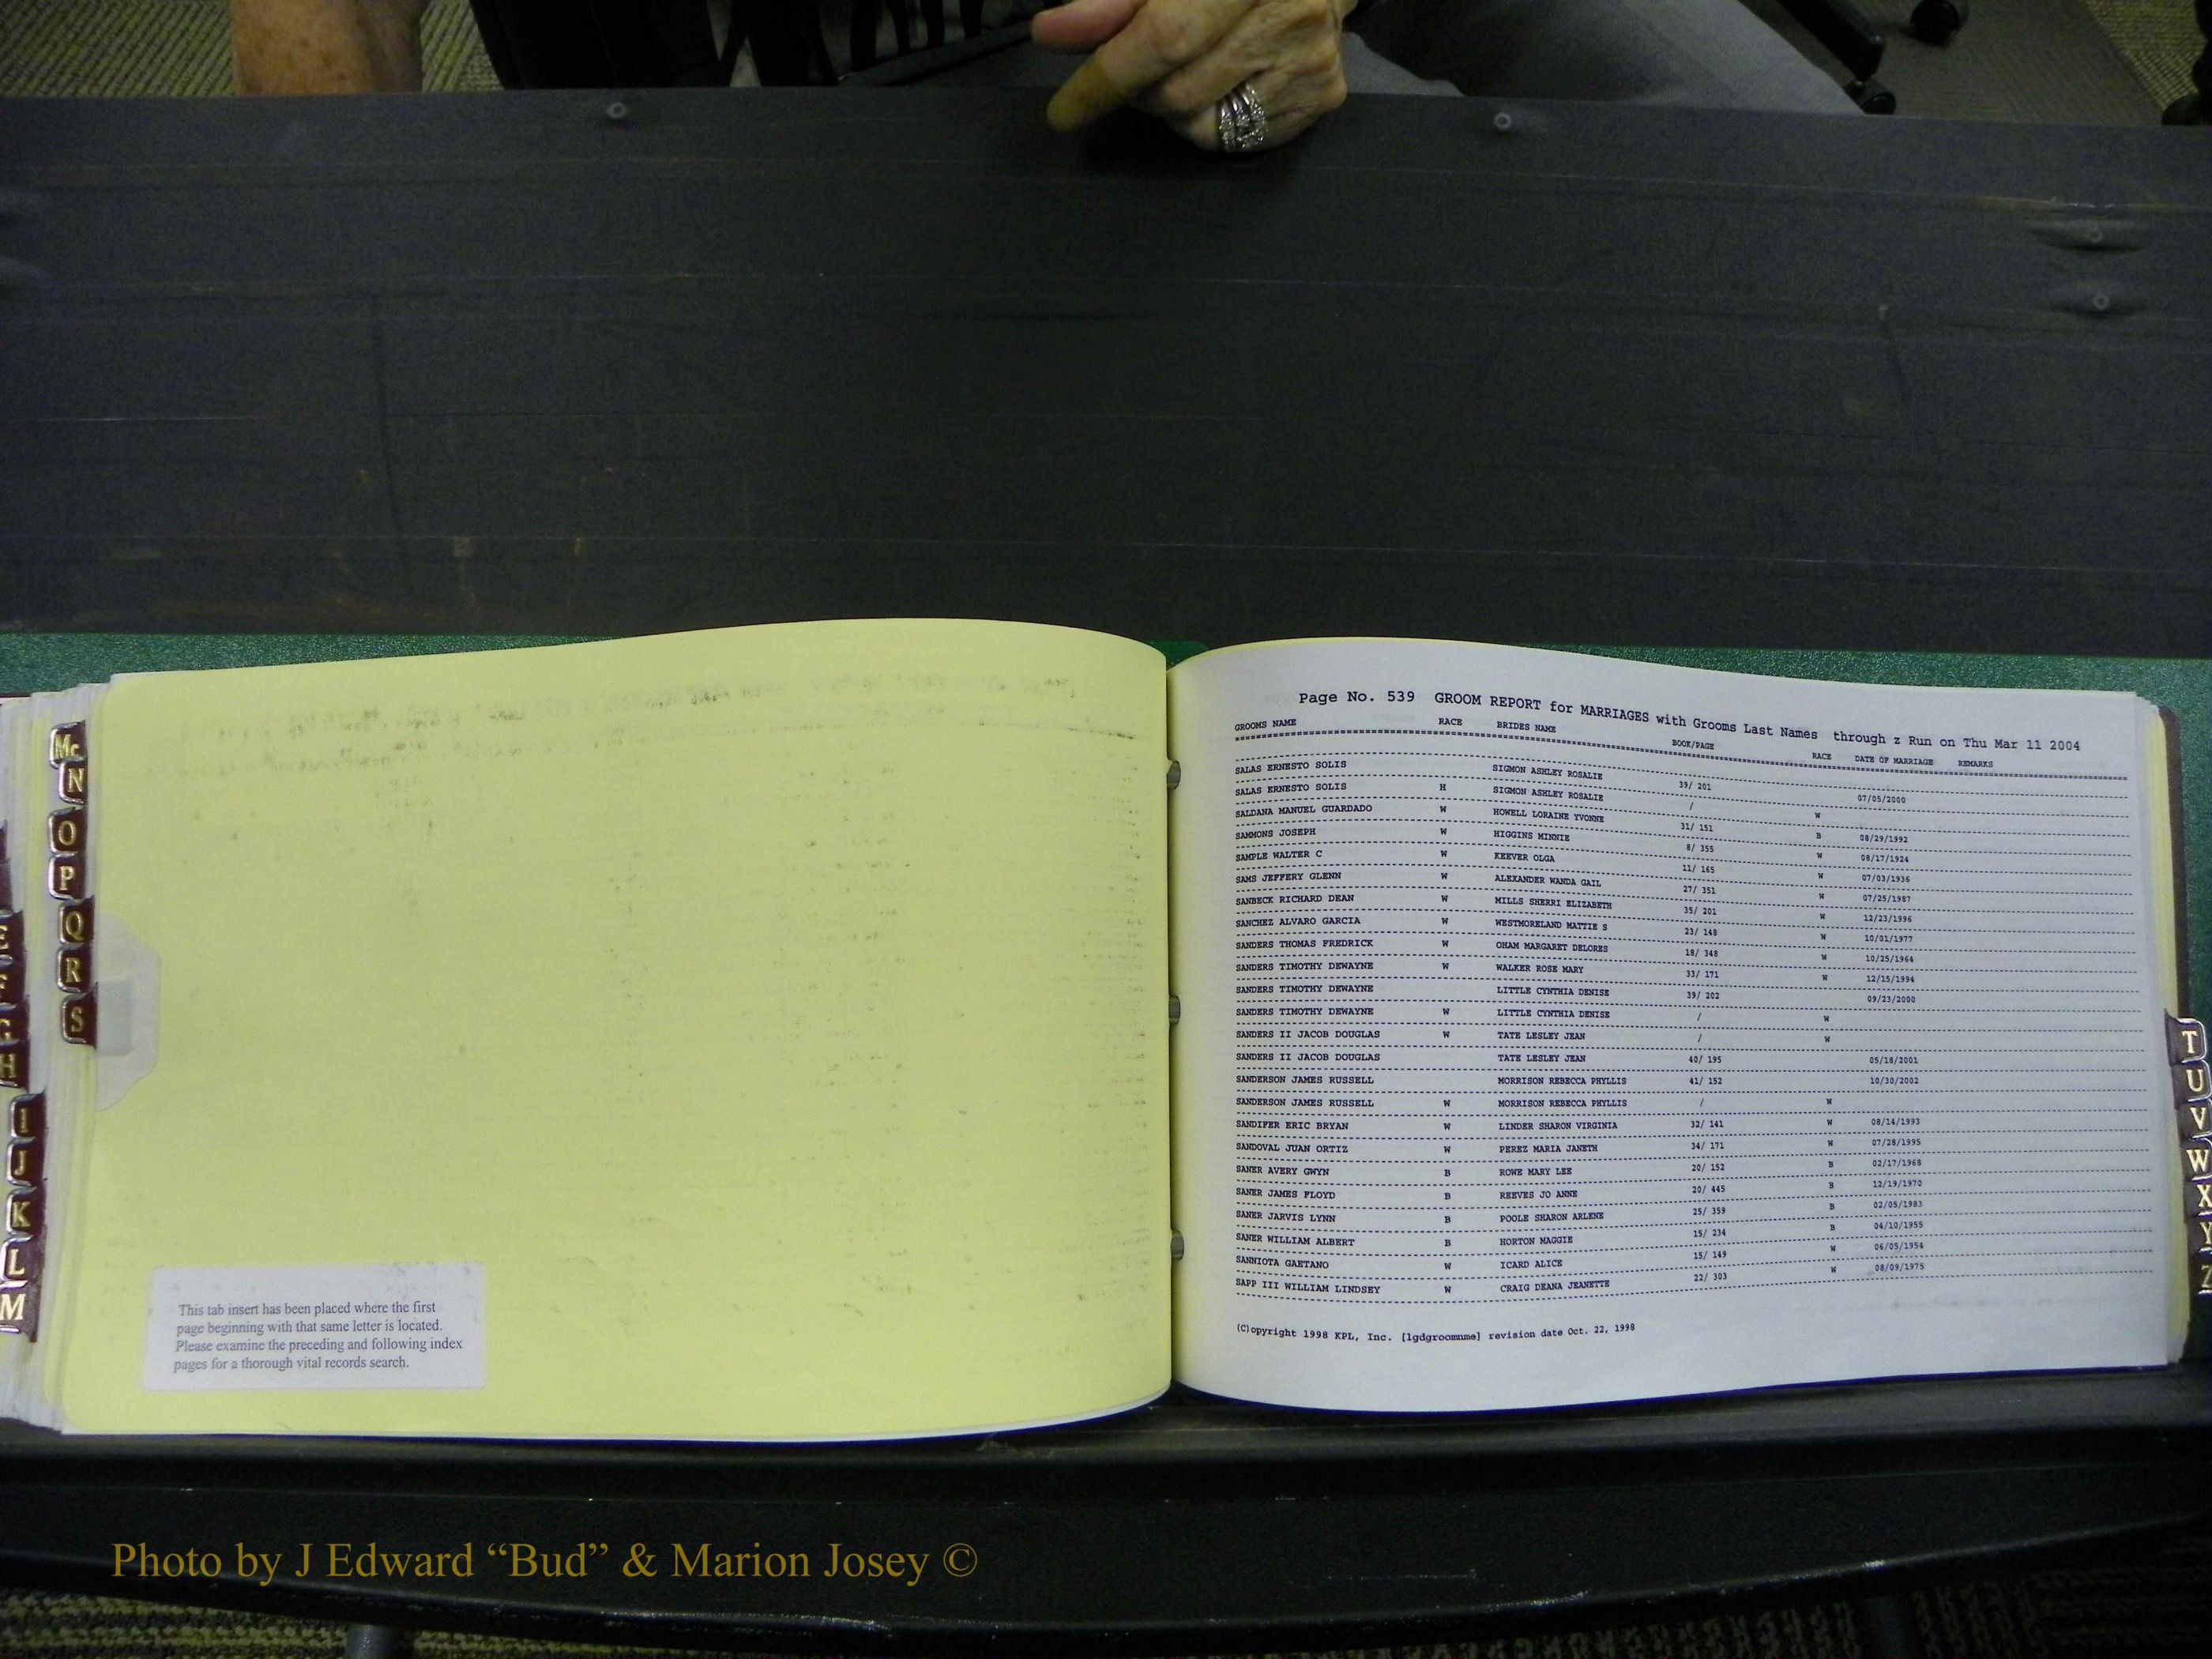 Mc
N
O
P
Q
R
S
E
F
G
H
I
J
K
L
M
This tab insert has been placed where the first
page beginning with that same letter is located.
Please examine the preceding and following index
pages for a thorough vital records search.
Page No. 539 GROOM REPORT for MARRIAGES with Grooms Last Names through z Run on Thu Mar 11 2004
GROOMS NAME RACE BRIDES NAME BOOK/PAGE RACE DATE OF MARRIAGE REMARKS
SALAS ERNESTO SOLIS SIGMON ASHLEY ROSALIE 39/ 201 07/05/2000
SALAS ERNESTO SOLIS H SIGMON ASHLEY ROSALIE / W
SALDANA MANUEL GUARDADO W HOWELL LORAINE YVONNE 31/ 151 B 08/29/1992
SAMMONS JOSEPH W HIGGINS MINNIE 8/ 355 W 08/17/1924
SAMPLE WALTER C W KEEVER OLGA 11/ 165 W 07/03/1936
SAMS JEFFERY GLENN W ALEXANDER WANDA GAIL 27/ 351 W 07/25/1987
SANBECK RICHARD DEAN W MILLS SHERRI ELIZABETH 35/ 201 W 12/23/1996
SANCHEZ ALVARO GARCIA W WESTMORELAND MATTIE S 23/ 148 W 10/01/1977
SANDERS THOMAS FREDRICK W OHAM MARGARET DELORES 18/ 348 W 10/25/1964
SANDERS TIMOTHY DEWAYNE W WALKER ROSE MARY 33/ 171 W 12/15/1994
SANDERS TIMOTHY DEWAYNE LITTLE CYNTHIA DENISE 39/ 202 09/23/2000
SANDERS TIMOTHY DEWAYNE W LITTLE CYNTHIA DENISE / W
SANDERS II JACOB DOUGLAS W TATE LESLEY JEAN / W
SANDERS II JACOB DOUGLAS TATE LESLEY JEAN 40/ 195 05/18/2001
SANDERSON JAMES RUSSELL MORRISON REBECCA PHYLLIS 41/ 152 10/30/2002
SANDERSON JAMES RUSSELL W MORRISON REBECCA PHYLLIS / W
SANDIFER ERIC BRYAN W LINDER SHARON VIRGINIA 32/ 141 W 08/14/1993
SANDOVAL JUAN ORTIZ W PEREZ MARIA JANETH 34/ 171 W 07/28/1995
SANER AVERY GWYN B ROWE MARY LEE 20/ 152 B 02/17/1968
SANER JAMES FLOYD B REEVES JO ANNE 20/ 445 B 12/19/1970
SANER JARVIS LYNN B POOLE SHARON ARLENE 25/ 359 B 02/05/1983
SANER WILLIAM ALBERT B HORTON MAGGIE 15/ 234 B 04/10/1955
SANNIOTA GAETANO W ICARD ALICE 15/ 149 W 06/05/1954
SAPP III WILLIAM LINDSEY W CRAIG DEANA JEANETTE 22/ 303 W 08/09/1975
(C)opyright 1998 KPL, Inc. [lgdgroomnume] revision date Oct. 22, 1998
T
U
V
W
X
Y
Z
Photo by J Edward “Bud” & Marion Josey ©